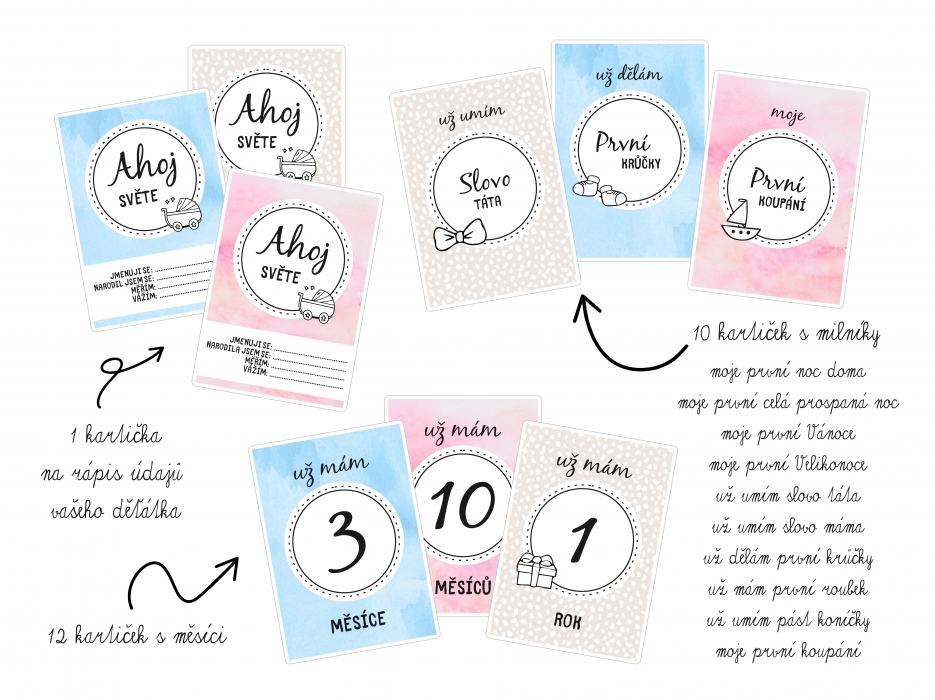 Ahoj
SVĚTE
Ahoj
SVĚTE
JMENUJI SE:
NARODIL JSEM SE:
MĚŘÍM:
VÁŽÍM:
Ahoj
SVĚTE
JMENUJI SE:
NARODILA JSEM SE:
MĚŘÍM:
VÁŽÍM:
1 kartička
na zápis údajů
vašeho děťátka
už umím
Slovo
TÁTA
už dělám
První
KRŮČKY
moje
První
KOUPÁNÍ
10 kartiček s milníky
moje první noc doma
moje první celá prospaná noc
moje první Vánoce
moje první Velikonoce
už umím slovo táta
už umím slovo máma
už dělám první krůčky
už mám první roubek
už umím pást koníčky
moje první koupání
už mám
3
MĚSÍCE
už mám
10
MĚSÍCŮ
už mám
1
ROK
12 kartiček s měsíci